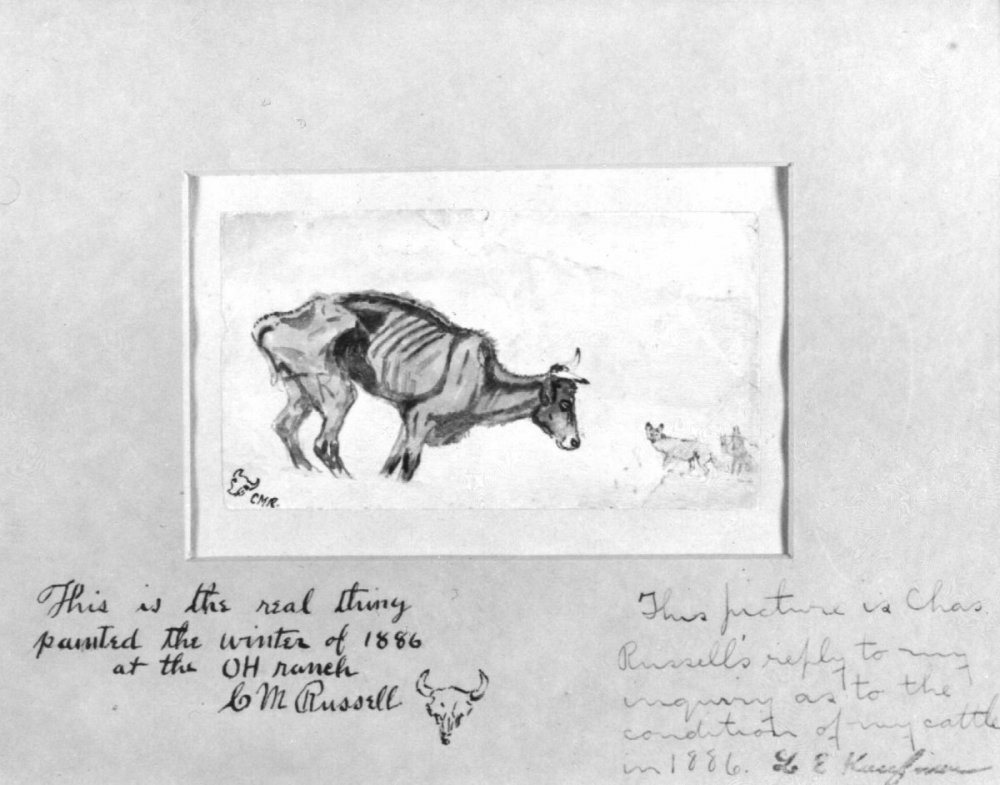 CMR.
This is the real thing
painted the winter of 1886
at the OH ranch
C M Russell
This picture is Chas.
Russell's reply to my
inquiry as to the
condition of my cattle
in 1886. L E Kaufman